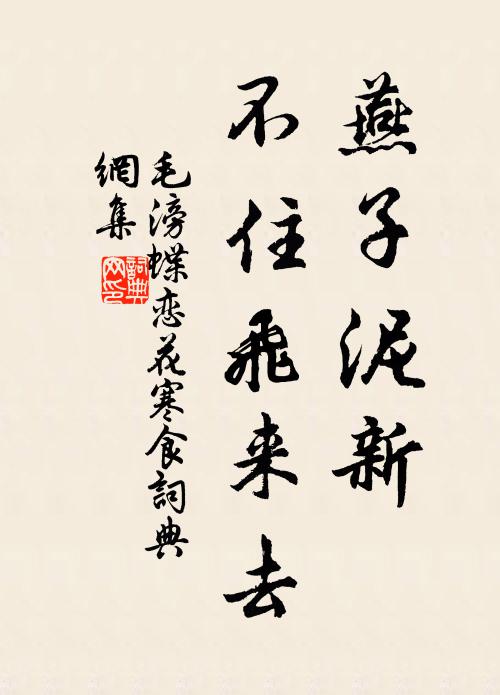 燕子泥新
不住飛来去
毛滂蝶恋花寒食詞典
網集
詞典
网印